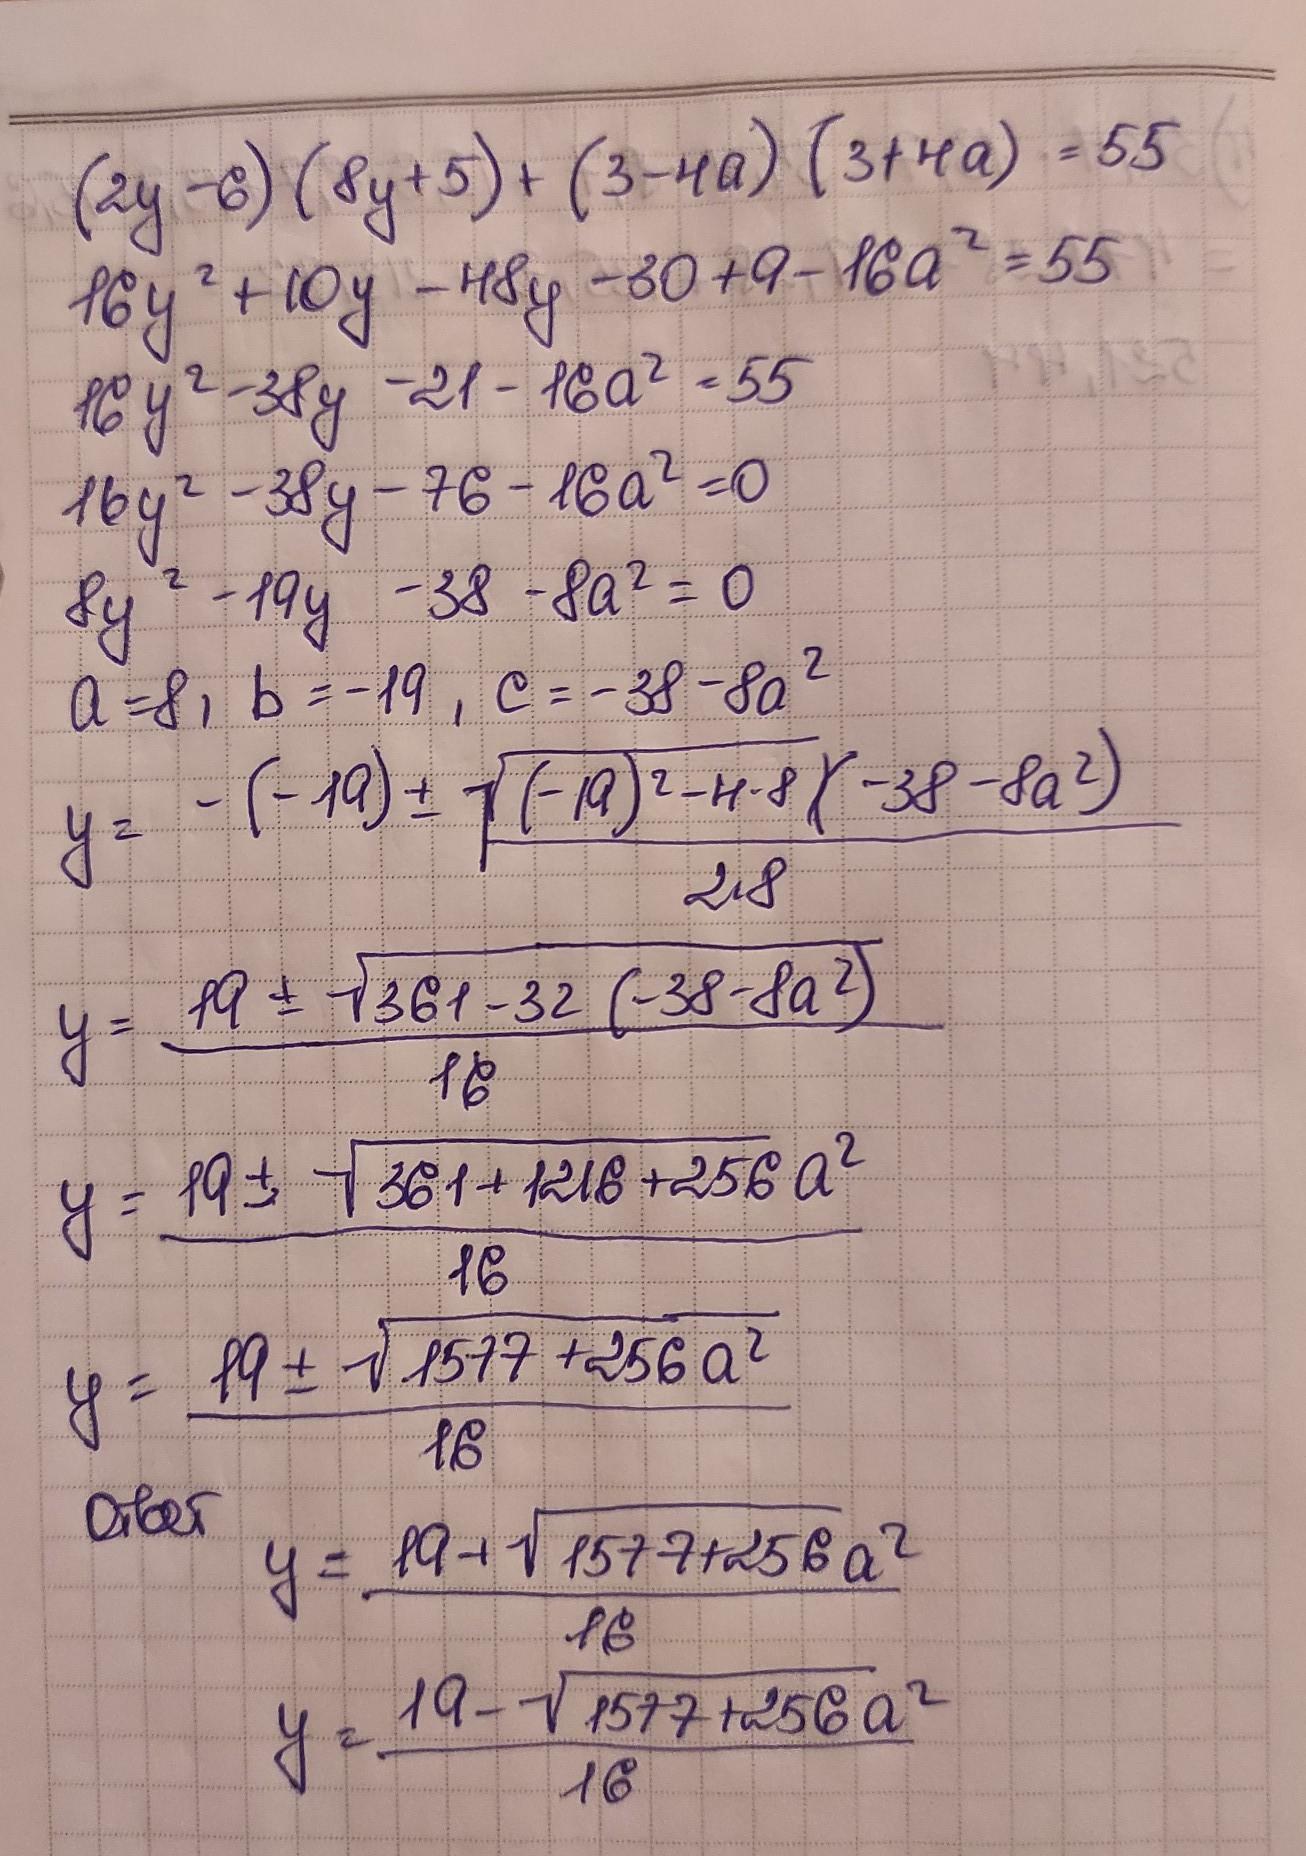 (2y-6)(8y+5)+(3-4a)(3+4a)=55
16y²+10y-48y-30+9-16a²=55
16y²-38y-21-16a²=55
16y²-38y-76-16a²=0
8y²-19y-38-8a²=0
a=8, b=-19, c=-38-8a²
y= -(-19)±√(-19)²-4·8)(-38-8a²)
2·8
y= 19±√361-32(-38-8a²)
16
y= 19±√361+1216+256a²
16
y= 19±√1577+256a²
16
Ответ
y= 19+√1577+256a²
16
y= 19-√1577+256a²
16